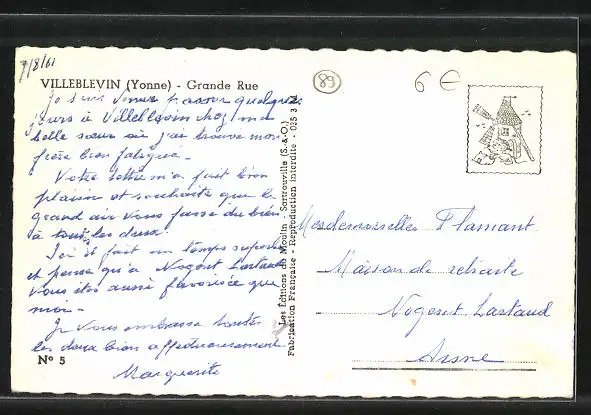 7/8/61
VILLEBLEVIN (Yonne) - Grande Rue
Je suis venue passer quelques
jours à Villeblevin chez ma
belle sœur où j'ai trouvé mon
frère bien fatigué.
Votre lettre m'a fait bien
plaisir et souhaite que le
grand air vous fasse du bien
à toutes les deux.
Ici il fait un temps superbe
et pense qu'à Nogent Lartaud
vous êtes aussi favorisée que
moi.
Je vous embrasse toutes
les deux bien affectueusement
Marguerite
N° 5
Les Éditions du Moulin - Sartrouville (S.-&-O.)
Fabrication Française - Reproduction interdite - 025 3 A
89
6 €
Mesdemoiselles Flamant
Maison de retraite
Nogent Lartaud
Aisne